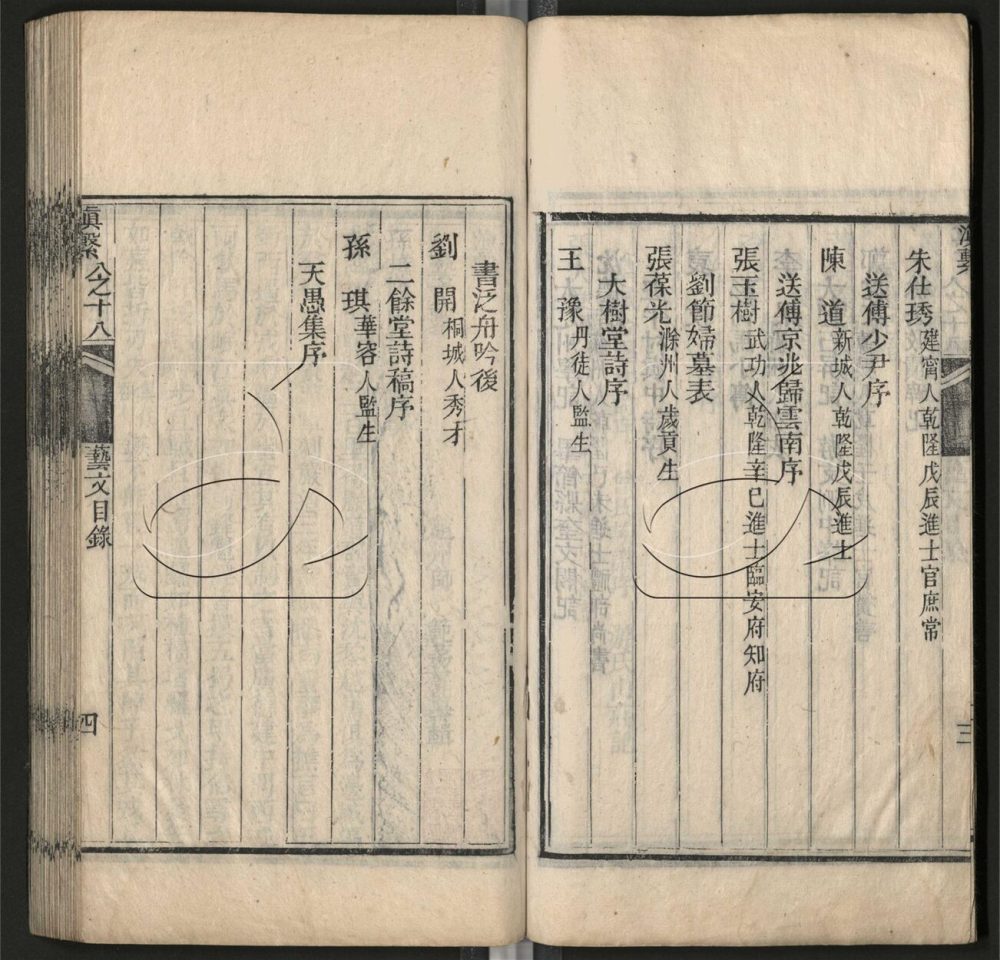 朱仕琇 建甯人乾隆戊辰進士官庶常
送傅少尹序
陳道 新城人乾隆戊辰進士
送傅京兆歸雲南序
張玉樹 武功人乾隆辛巳進士臨安府知府
劉節婦墓表
張葆光 滁州人歲貢生
大樹堂詩序
王豫 丹徒人監生
三
書泛舟吟後
劉開 桐城人秀才
二餘堂詩稿序
孫琪 華容人監生
天愚集序
滇繫 八之十八 藝文目錄 四